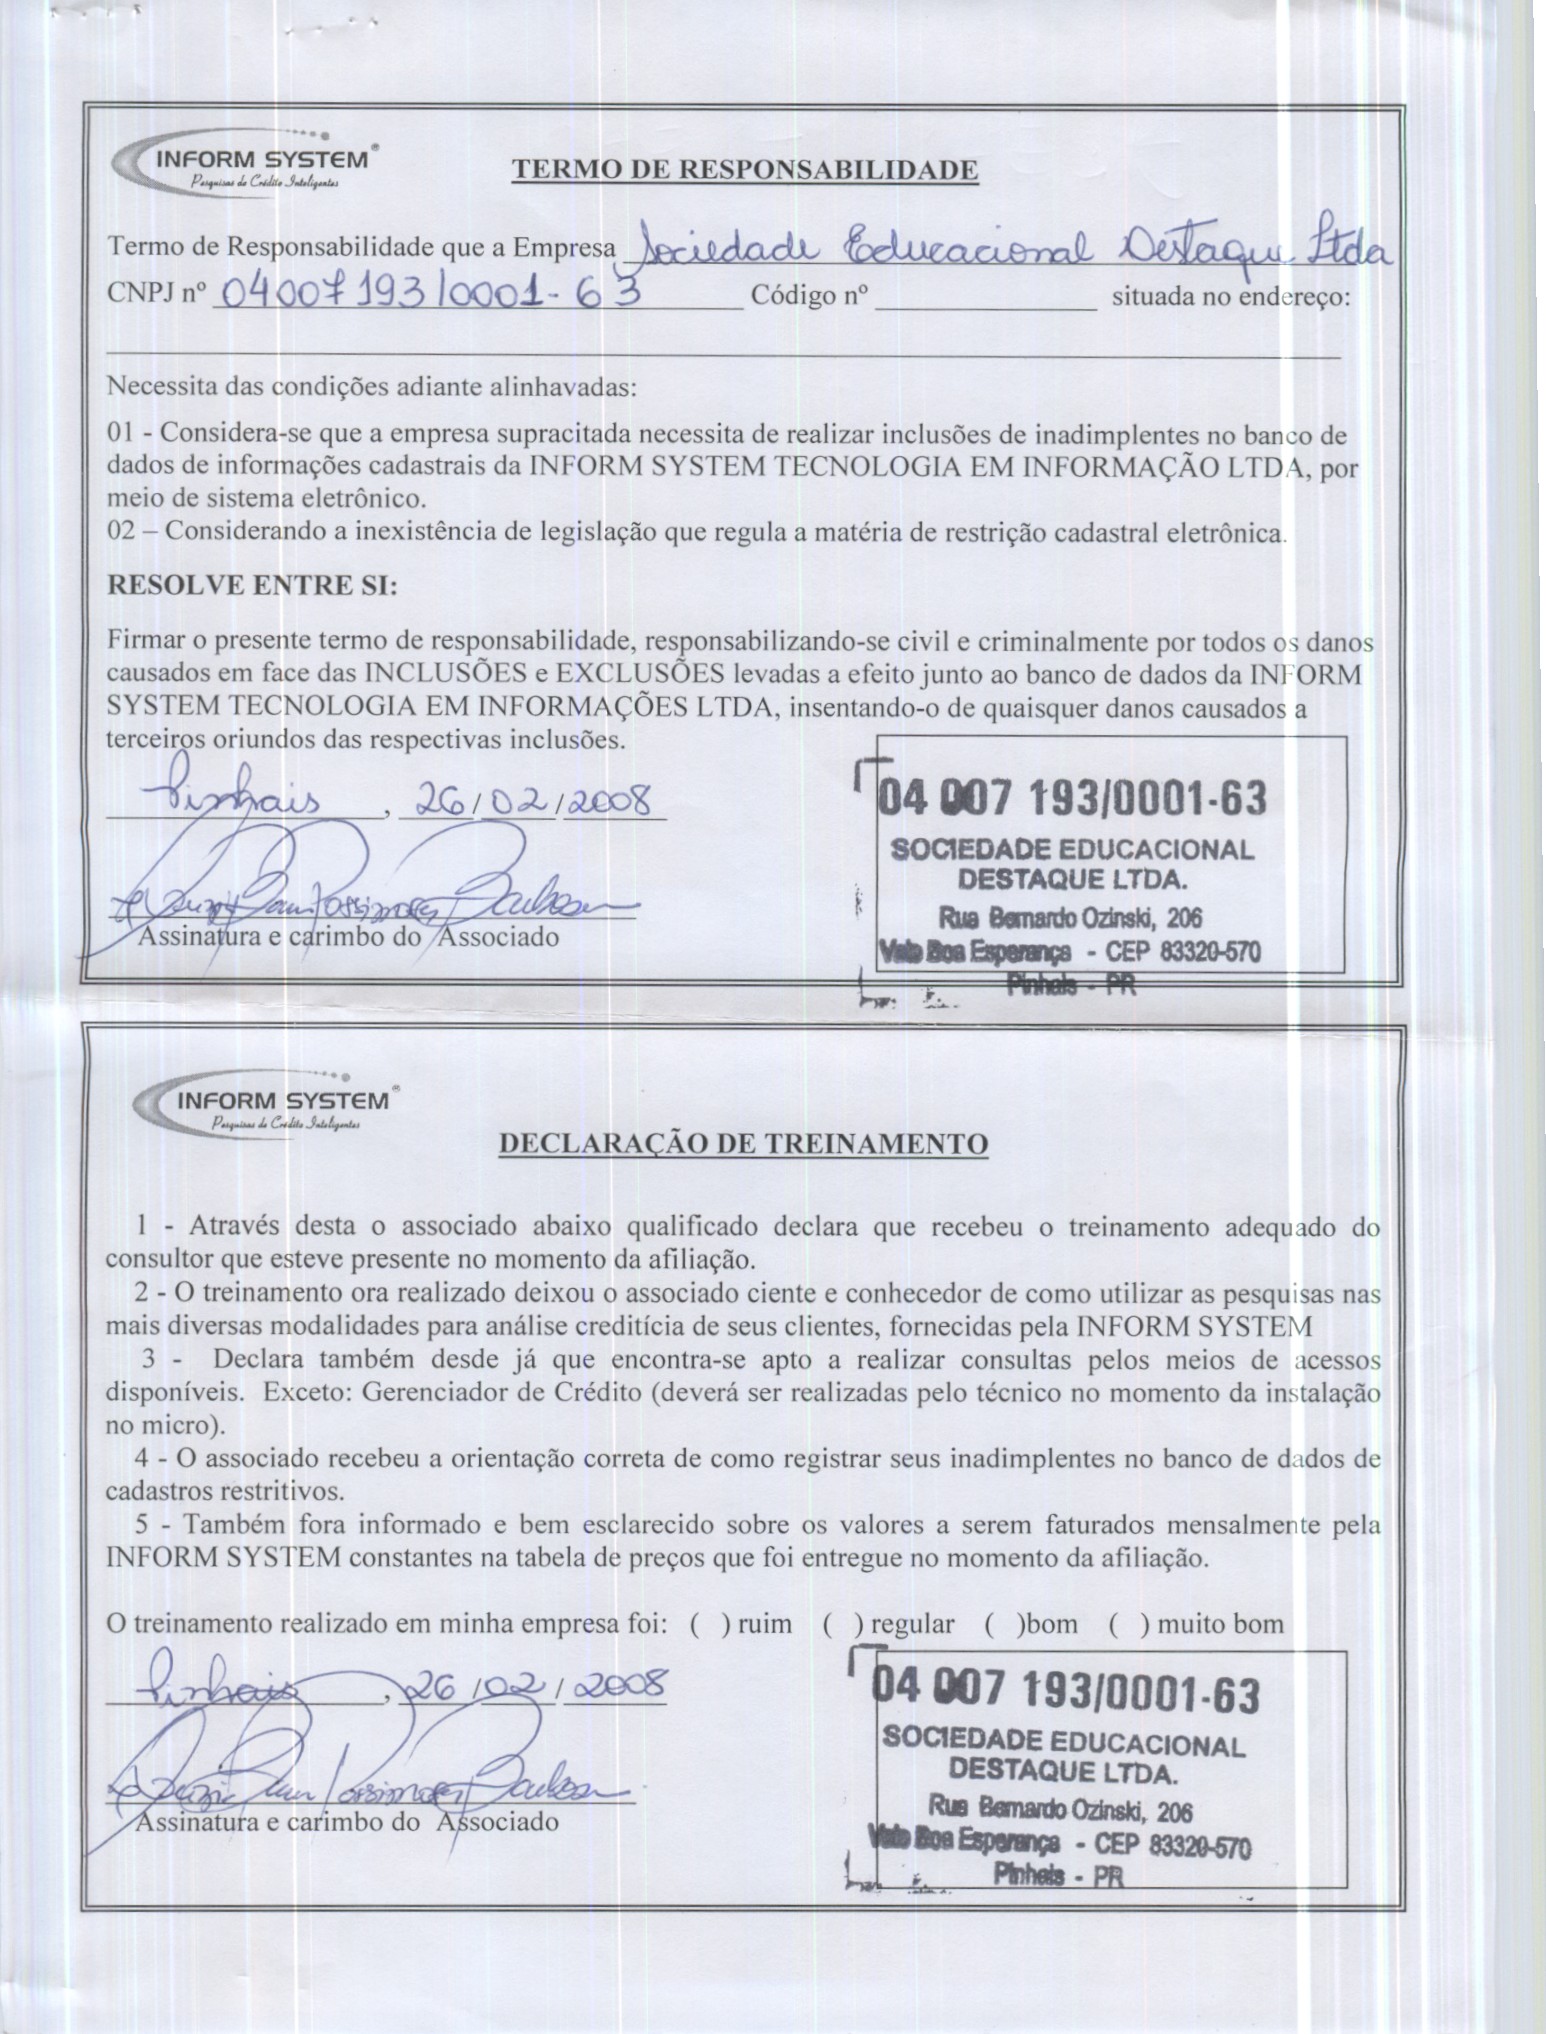 INFORM SYSTEM®
Pesquisas de Crédito Inteligentes
TERMO DE RESPONSABILIDADE
Termo de Responsabilidade que a Empresa Sociedade Educacional Destaque Ltda
CNPJ nº 04007193/0001-63 Código nº situada no endereço:
Necessita das condições adiante alinhavadas:
01 - Considera-se que a empresa supracitada necessita de realizar inclusões de inadimplentes no banco de
dados de informações cadastrais da INFORM SYSTEM TECNOLOGIA EM INFORMAÇÃO LTDA, por
meio de sistema eletrônico.
02 – Considerando a inexistência de legislação que regula a matéria de restrição cadastral eletrônica.
RESOLVE ENTRE SI:
Firmar o presente termo de responsabilidade, responsabilizando-se civil e criminalmente por todos os danos
causados em face das INCLUSÕES e EXCLUSÕES levadas a efeito junto ao banco de dados da INFORM
SYSTEM TECNOLOGIA EM INFORMAÇÕES LTDA, insentando-o de quaisquer danos causados a
terceiros oriundos das respectivas inclusões.
Pinhais, 26/02/2008
Assinatura e carimbo do Associado
04 007 193/0001-63
SOCIEDADE EDUCACIONAL
DESTAQUE LTDA.
Rua Bernardo Ozinski, 206
Boa Esperança - CEP 83320-570
Pinhais - PR
INFORM SYSTEM®
Pesquisas de Crédito Inteligentes
DECLARAÇÃO DE TREINAMENTO
1 - Através desta o associado abaixo qualificado declara que recebeu o treinamento adequado do
consultor que esteve presente no momento da afiliação.
2 - O treinamento ora realizado deixou o associado ciente e conhecedor de como utilizar as pesquisas nas
mais diversas modalidades para análise creditícia de seus clientes, fornecidas pela INFORM SYSTEM
3 - Declara também desde já que encontra-se apto a realizar consultas pelos meios de acessos
disponíveis. Exceto: Gerenciador de Crédito (deverá ser realizadas pelo técnico no momento da instalação
no micro).
4 - O associado recebeu a orientação correta de como registrar seus inadimplentes no banco de dados de
cadastros restritivos.
5 - Também fora informado e bem esclarecido sobre os valores a serem faturados mensalmente pela
INFORM SYSTEM constantes na tabela de preços que foi entregue no momento da afiliação.
O treinamento realizado em minha empresa foi: ( ) ruim ( ) regular ( )bom ( ) muito bom
Pinhais, 26/02/2008
Assinatura e carimbo do Associado
04 007 193/0001-63
SOCIEDADE EDUCACIONAL
DESTAQUE LTDA.
Rua Bernardo Ozinski, 206
Boa Esperança - CEP 83320-570
Pinhais - PR